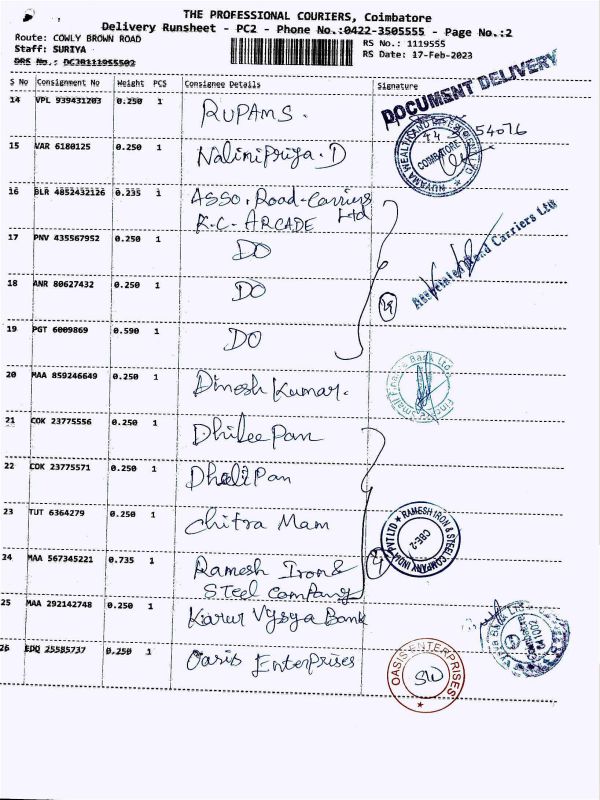 THE PROFESSIONAL COURIERS, Coimbatore
Delivery Runsheet - PC2 - Phone No.:0422-3505555 - Page No.:2
Route: COWLY BROWN ROAD
RS No.: 1119555
Staff: SURIYA
RS Date: 17-Feb-2023
DRS No.: DC20111955502
S No Consignment No Weight PCS Consignee Details Signature
DOCUMENT DELIVERY
14 VPL 939431203 0.250 1 RUPAMS.
54076
COIMBATORE
15 VAR 6180125 0.250 1 Nalinipriya. D
16 BLR 4852432126 0.235 1 ASSO. Road-Carriers Ltd
K.C. ARCADE
Associated Road Carriers Ltd
17 PNV 435567952 0.250 1 DO
18 ANR 80627432 0.250 1 DO
19 PGT 6009869 0.590 1 DO
20 MAA 859246649 0.250 1 Dinesh Kumar.
21 COK 23775556 0.250 1 Dhilee Pan
22 COK 23775571 0.250 1 Dheeli Pan
23 TUT 6364279 0.250 1 Chitra Mam
RAMESH IRON & STEEL COMPANY INDIA PVT LTD
CBE-2
24 MAA 567345221 0.735 1 Ramesh Iron &
Steel Company
4
25 MAA 292142748 0.250 1 Karur Vysya Bank
26 EDQ 25585737 0.250 1 Oasis Enterprises
OASIS ENTERPRISES
SW